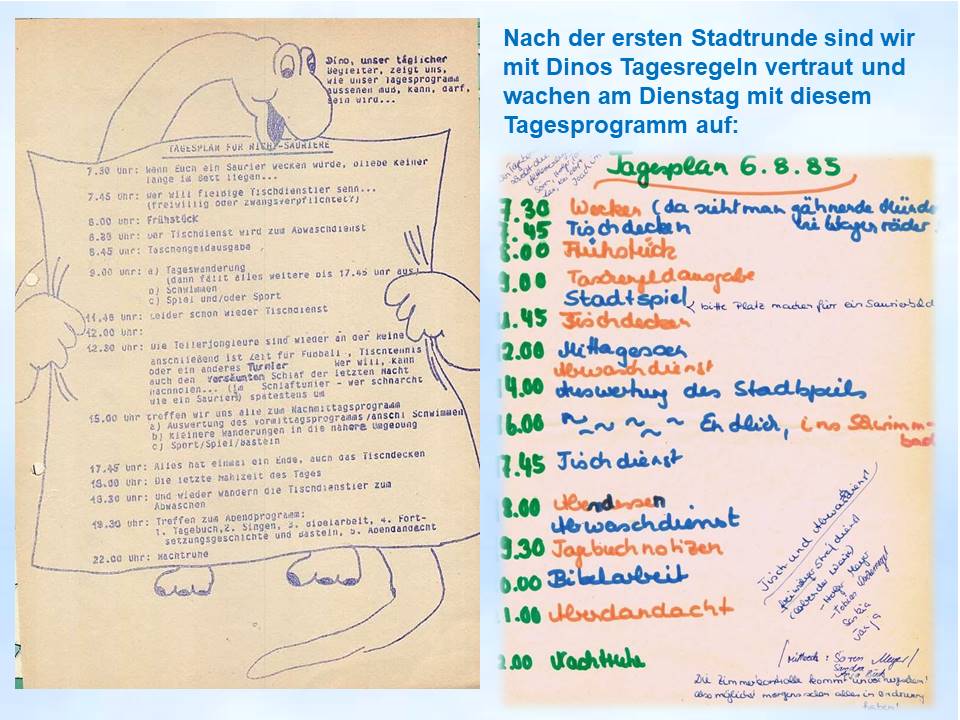 Nach der ersten Stadtrunde sind wir
mit Dinos Tagesregeln vertraut und
wachen am Dienstag mit diesem
Tagesprogramm auf:
Dino, unser täglicher
Begleiter, zeigt uns,
wie unser Tagesprogramm
aussehen muß, kann, darf,
sein wird...
TAGESPLAN FÜR NICHT-SAURIERE
7.30 Uhr: Wenn Euch ein Saurier wecken würde, bliebe keiner
lange im Bett liegen...
7.45 Uhr: Wer will fleißige Tischdienstler sehn...
(freiwillig oder zwangsverpflichtet?)
8.00 Uhr: Frühstück
8.30 Uhr: Der Tischdienst wird zum Abwaschdienst
8.45 Uhr: Taschengeldausgabe
9.00 Uhr: a) Tageswanderung
(dann fällt alles weitere bis 17.45 Uhr aus)
b) Schwimmen
c) Spiel und/oder Sport
11.45 Uhr: Leider schon wieder Tischdienst
12.00 Uhr:
12.30 Uhr: Die Tellerjongleure sind wieder an der Reihe
anschließend ist Zeit für Fußball, Tischtennis
oder ein anderes Turnier Wer will, kann
auch den versäumten Schlaf der letzten Nacht
nachholen... (im Schlaftunier - wer schnarcht
wie ein Saurier) spätestens um
15.00 Uhr treffen wir uns alle zum Nachmittagsprogramm
a) Auswertung des Vormittagsprogramms/anschl Schwimmen
b) kleinere Wanderungen in die nähere Umgebung
c) Sport/Spiel/basteln
17.45 Uhr: Alles hat einmal ein Ende, auch das Tischdecken
18.00 Uhr: Die letzte Mahlzeit des Tages
18.30 Uhr: Und wieder wandern die Tischdienstler zum
Abwaschen
19.30 Uhr: Treffen zum Abendprogramm:
1. Tagebuch,2. Singen, 3. Bibelarbeit, 4. Fort-
setzungsgeschichte und Basteln, 5. Abendandacht
22.00 Uhr: Nachtruhe
Tagesplan 6.8.85
7.30 Wecken (da sieht man gähnende Münde
.45 Tischdecken
8.00 Frühstück
9.00 Taschengeldausgabe
Stadtspiel (bitte Platz machen für ein Saurierbild
1.45 Tischdecken
2.00 Mittagessen
Abwaschdienst
14.00 Auswertung des Stadtspiels
16.00 Endlich, ins Schwimm-
bad
7.45 Tischdienst
8.00 Abendessen
Abwaschdienst
9.30 Tagebuchnotizen
0.00 Bibelarbeit
1.00 Abendandacht
2.00 Nachtruhe
Tisch und Abwaschdienst
- Holger Meyer
- Tobias
Saskia
Tanja
(Mittwoch: Sören Meyer/
Sandra
Die Zimmerkontrolle kommt unvorhergesehen!
also möglichst morgens schon alles in Ordnung
haben!